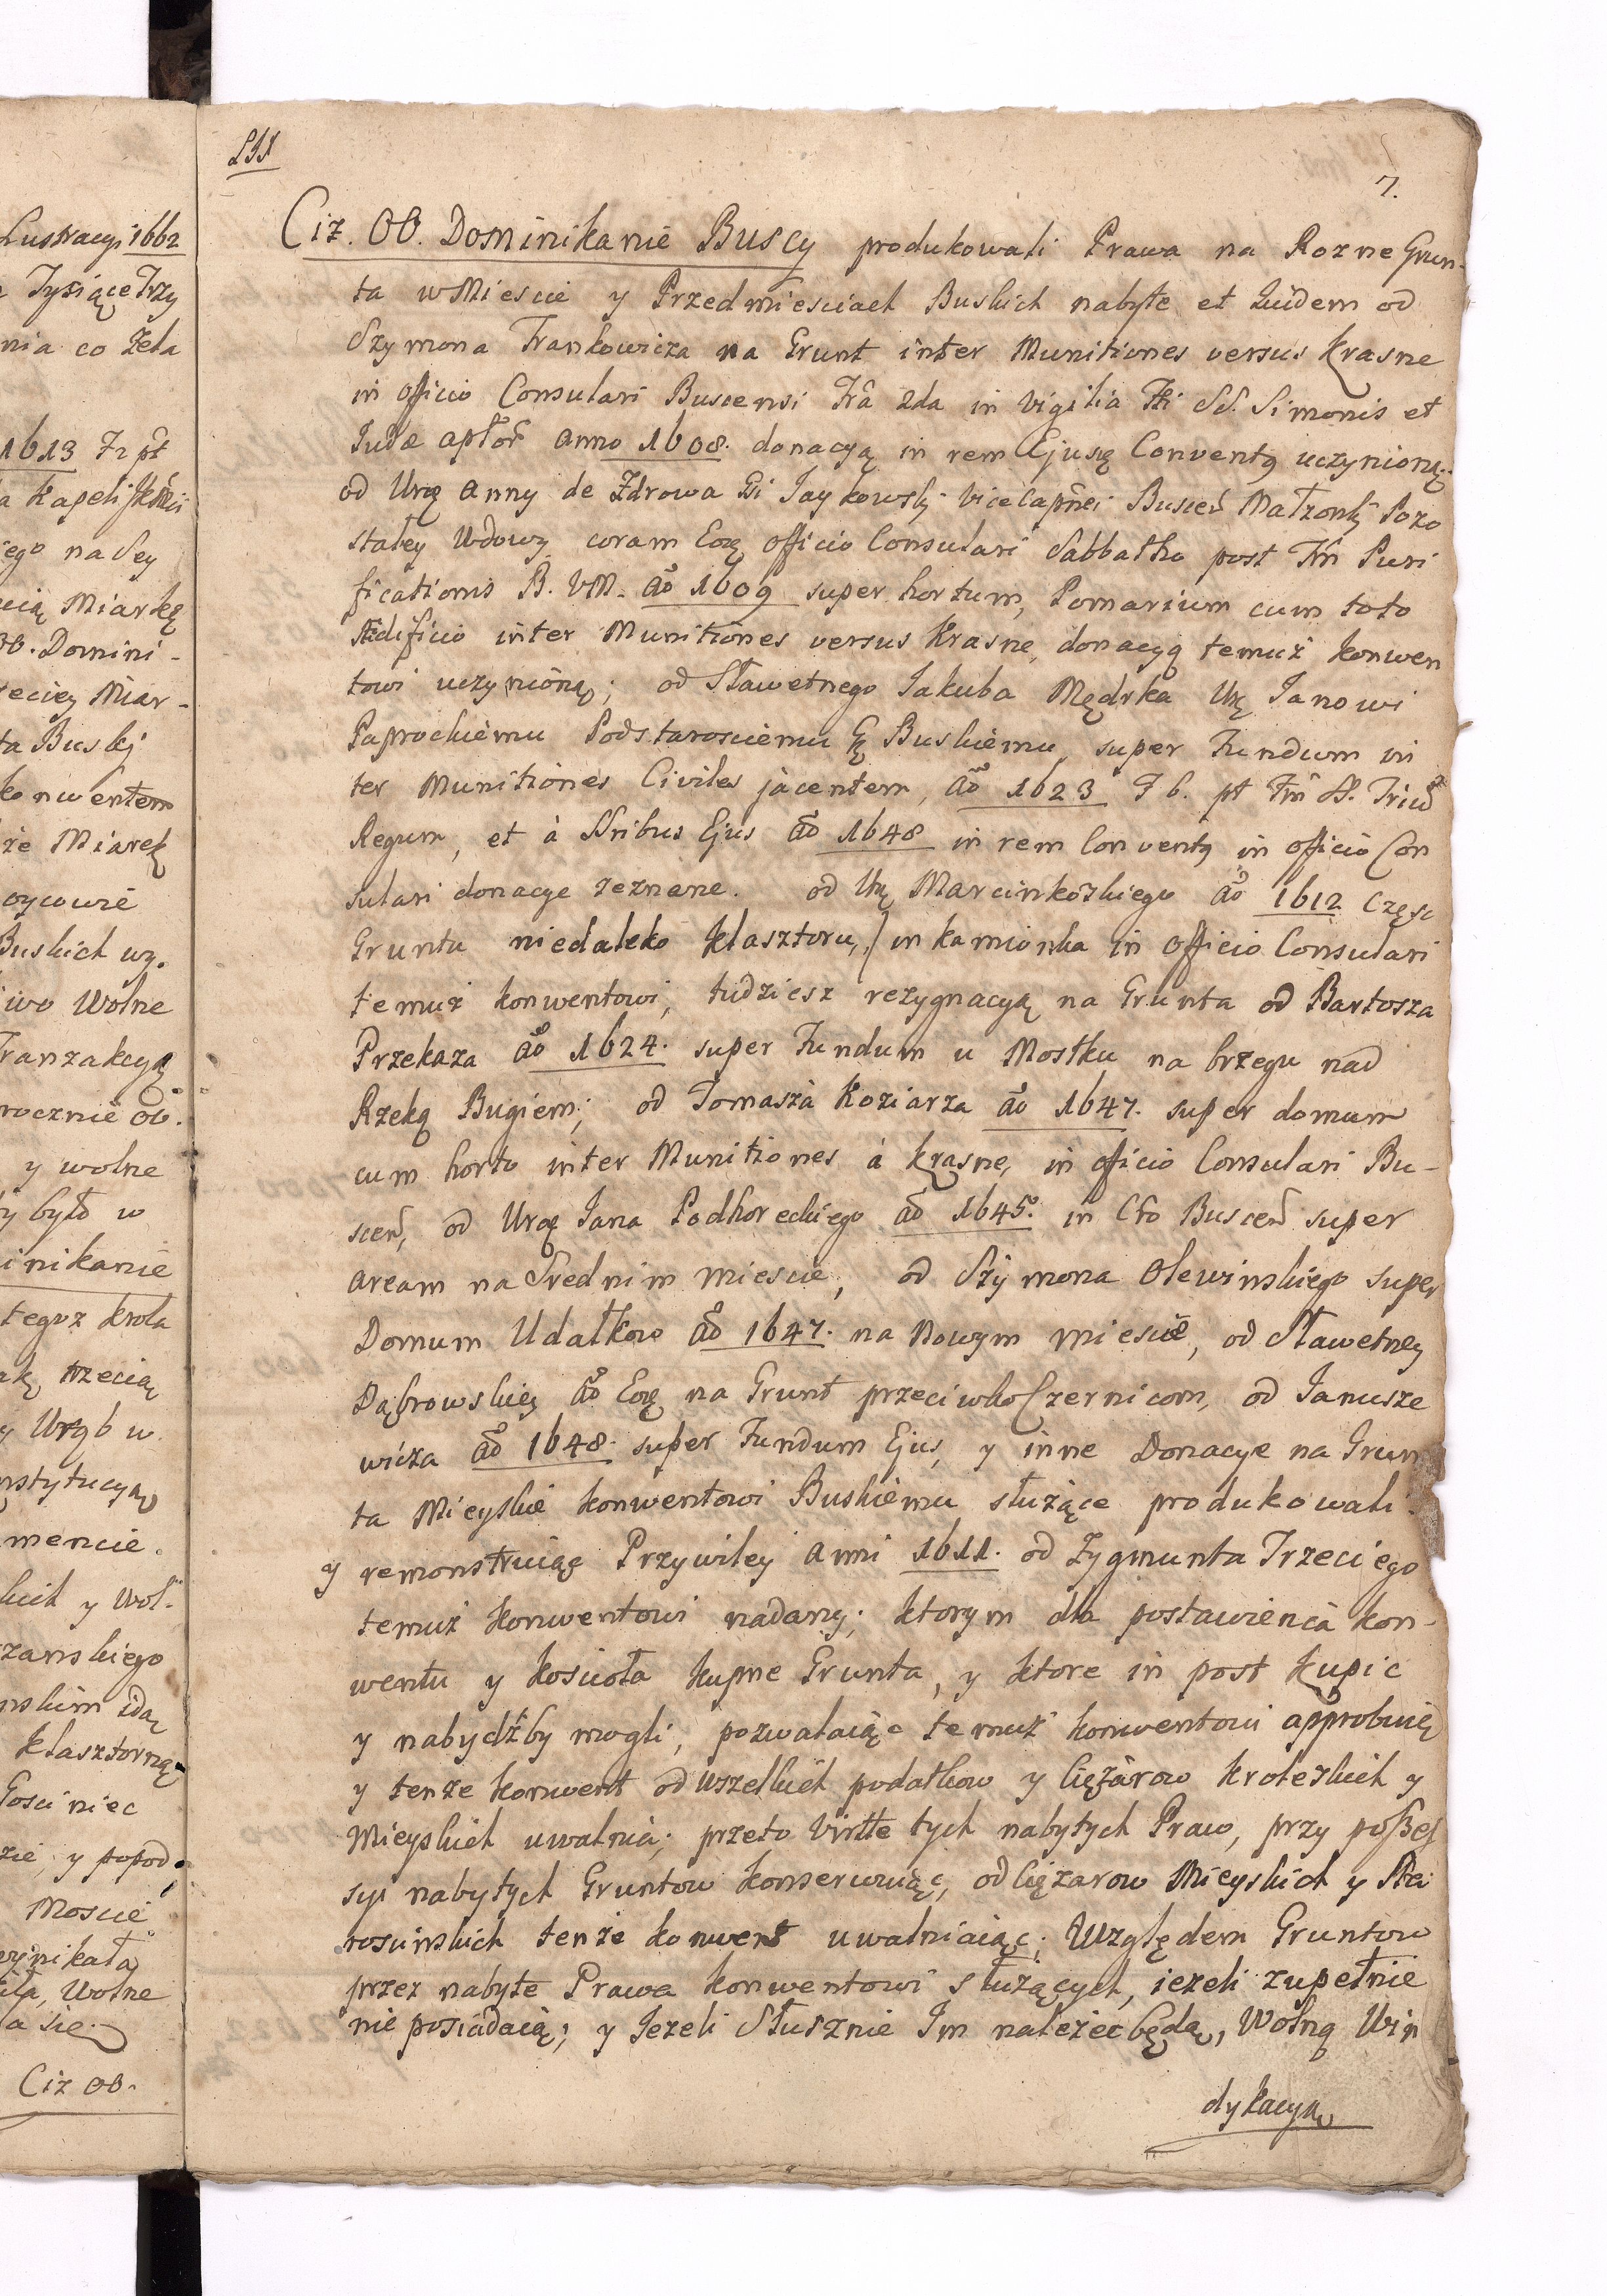 Lustracyi 1662
Tysiące Trzy
nia co Zela
1613
na Sey
Miarkę
OB. Domini-
Miar-
ta Busky
konwentem
że Miarek
oycowie
Buskich wy.
wo Wolne
Tranzakcyą
rocznie OO.
y wolne
było w
inikanie
tegoz krola
trzecią
w
nstytucyą
mencie.
kich y Wol-
zanskiego
nskim idą
klasztorną
Gosciniec
zie, y popod
Moscie
wynikała
Wolne
a się.
Ciz OO.
7.
Ciz. OO. Dominikanie Buscy produkowali Prawa na Rozne Grun-
ta w Miescie y Przedmiesciach Buskich nabyte et quidem od
Szymona Frankowicza na Grunt inter Munitiones versus Krasne
in officio Consulari Buscensi Fra 2da in Vigilia Fti SS. Simonis et
Judæ aptor anno 1608. donacyą in rem Ejusq Conventq uczynioną.
od Urq Anny de Zdrowa Gi Jaykowsky Vicecapnei Buscen Małzonky Pozo
stałey Wdowy coram Eoq officio Consulari Sabbatho post Ftm Puri
ficationis B. VM. Ao 1609 super hortum, Pomarium cum toto
Ædificio inter Munitiones versus Krasne, donacyą temuż konwen
towi uczynioną; od Sławetnego Jakuba Mędrka Urq Janowi
Paprockiemu Podstarosciemu Buskiemu, super Fundum in
ter Munitiones Civiles jacentem, Ao 1623 F 6. pt Ftm SS. Triu
Regum, et à Ssribus Ejus Ao 1648 in rem Conventq in officio Con
sulari donacye zeznane. od Urq Marcinkoskiego Ao 1612 częsc
Gruntu niedaleko klasztoru, in kamionka in officio Consulari
temuż konwentowi, tudziesz rezygnacyą na Grunta od Bartosza
Przekaza Ao 1624. super Fundum u Mostku na brzegu nad
Rzeką Bugiem; od Tomasza Koziarza Ao 1647. super domum
cum horto inter Munitiones à Krasne, in officio Consulari Bu-
scen, od Urq Jana Podhoreckiego Ao 1645. in Cto Buscen super
aream na Srednim miescie, od Szymona Olewinskiego super
Domum Udałkow Ao 1647. na Nowym miescie, od Sławetney
Dąbrowskiey Ao Eoq na Grunt przeciwko Czernicom, od Janusze
wicza Ao 1648. super Fundum Ejus, y inne Donacye na Grun
ta Mieyskie konwentowi Buskiemu służące produkowali.
y remonstruiąc Przywiley Anni 1611. od Zygmunta Trzeciego
temuż konwentowi nadany; ktorym dla postawienia kon-
wentu y koscioła kupne Grunta, y ktore in post kupic
y nabydźby mogli, pozwalaiąc temuż konwentowi approbuię
y tenże konwent od wszelkich podatkow y ciężarow krolezkich y
Mieyskich uwalnia; przeto virtte tych nabytych Praw, przy poßes
syi nabytych Gruntow konserwuiąc, od Ciężarow Mieyskich y Sta
roscinskich tenże konwent uwalniaiąc; Względem Gruntow
przez nabyte Prawa konwentowi służących, iezeli zupełnie
nie posiadaią; y Jezeli Słusznie Im należec będą, Wolną Win
dykacyą